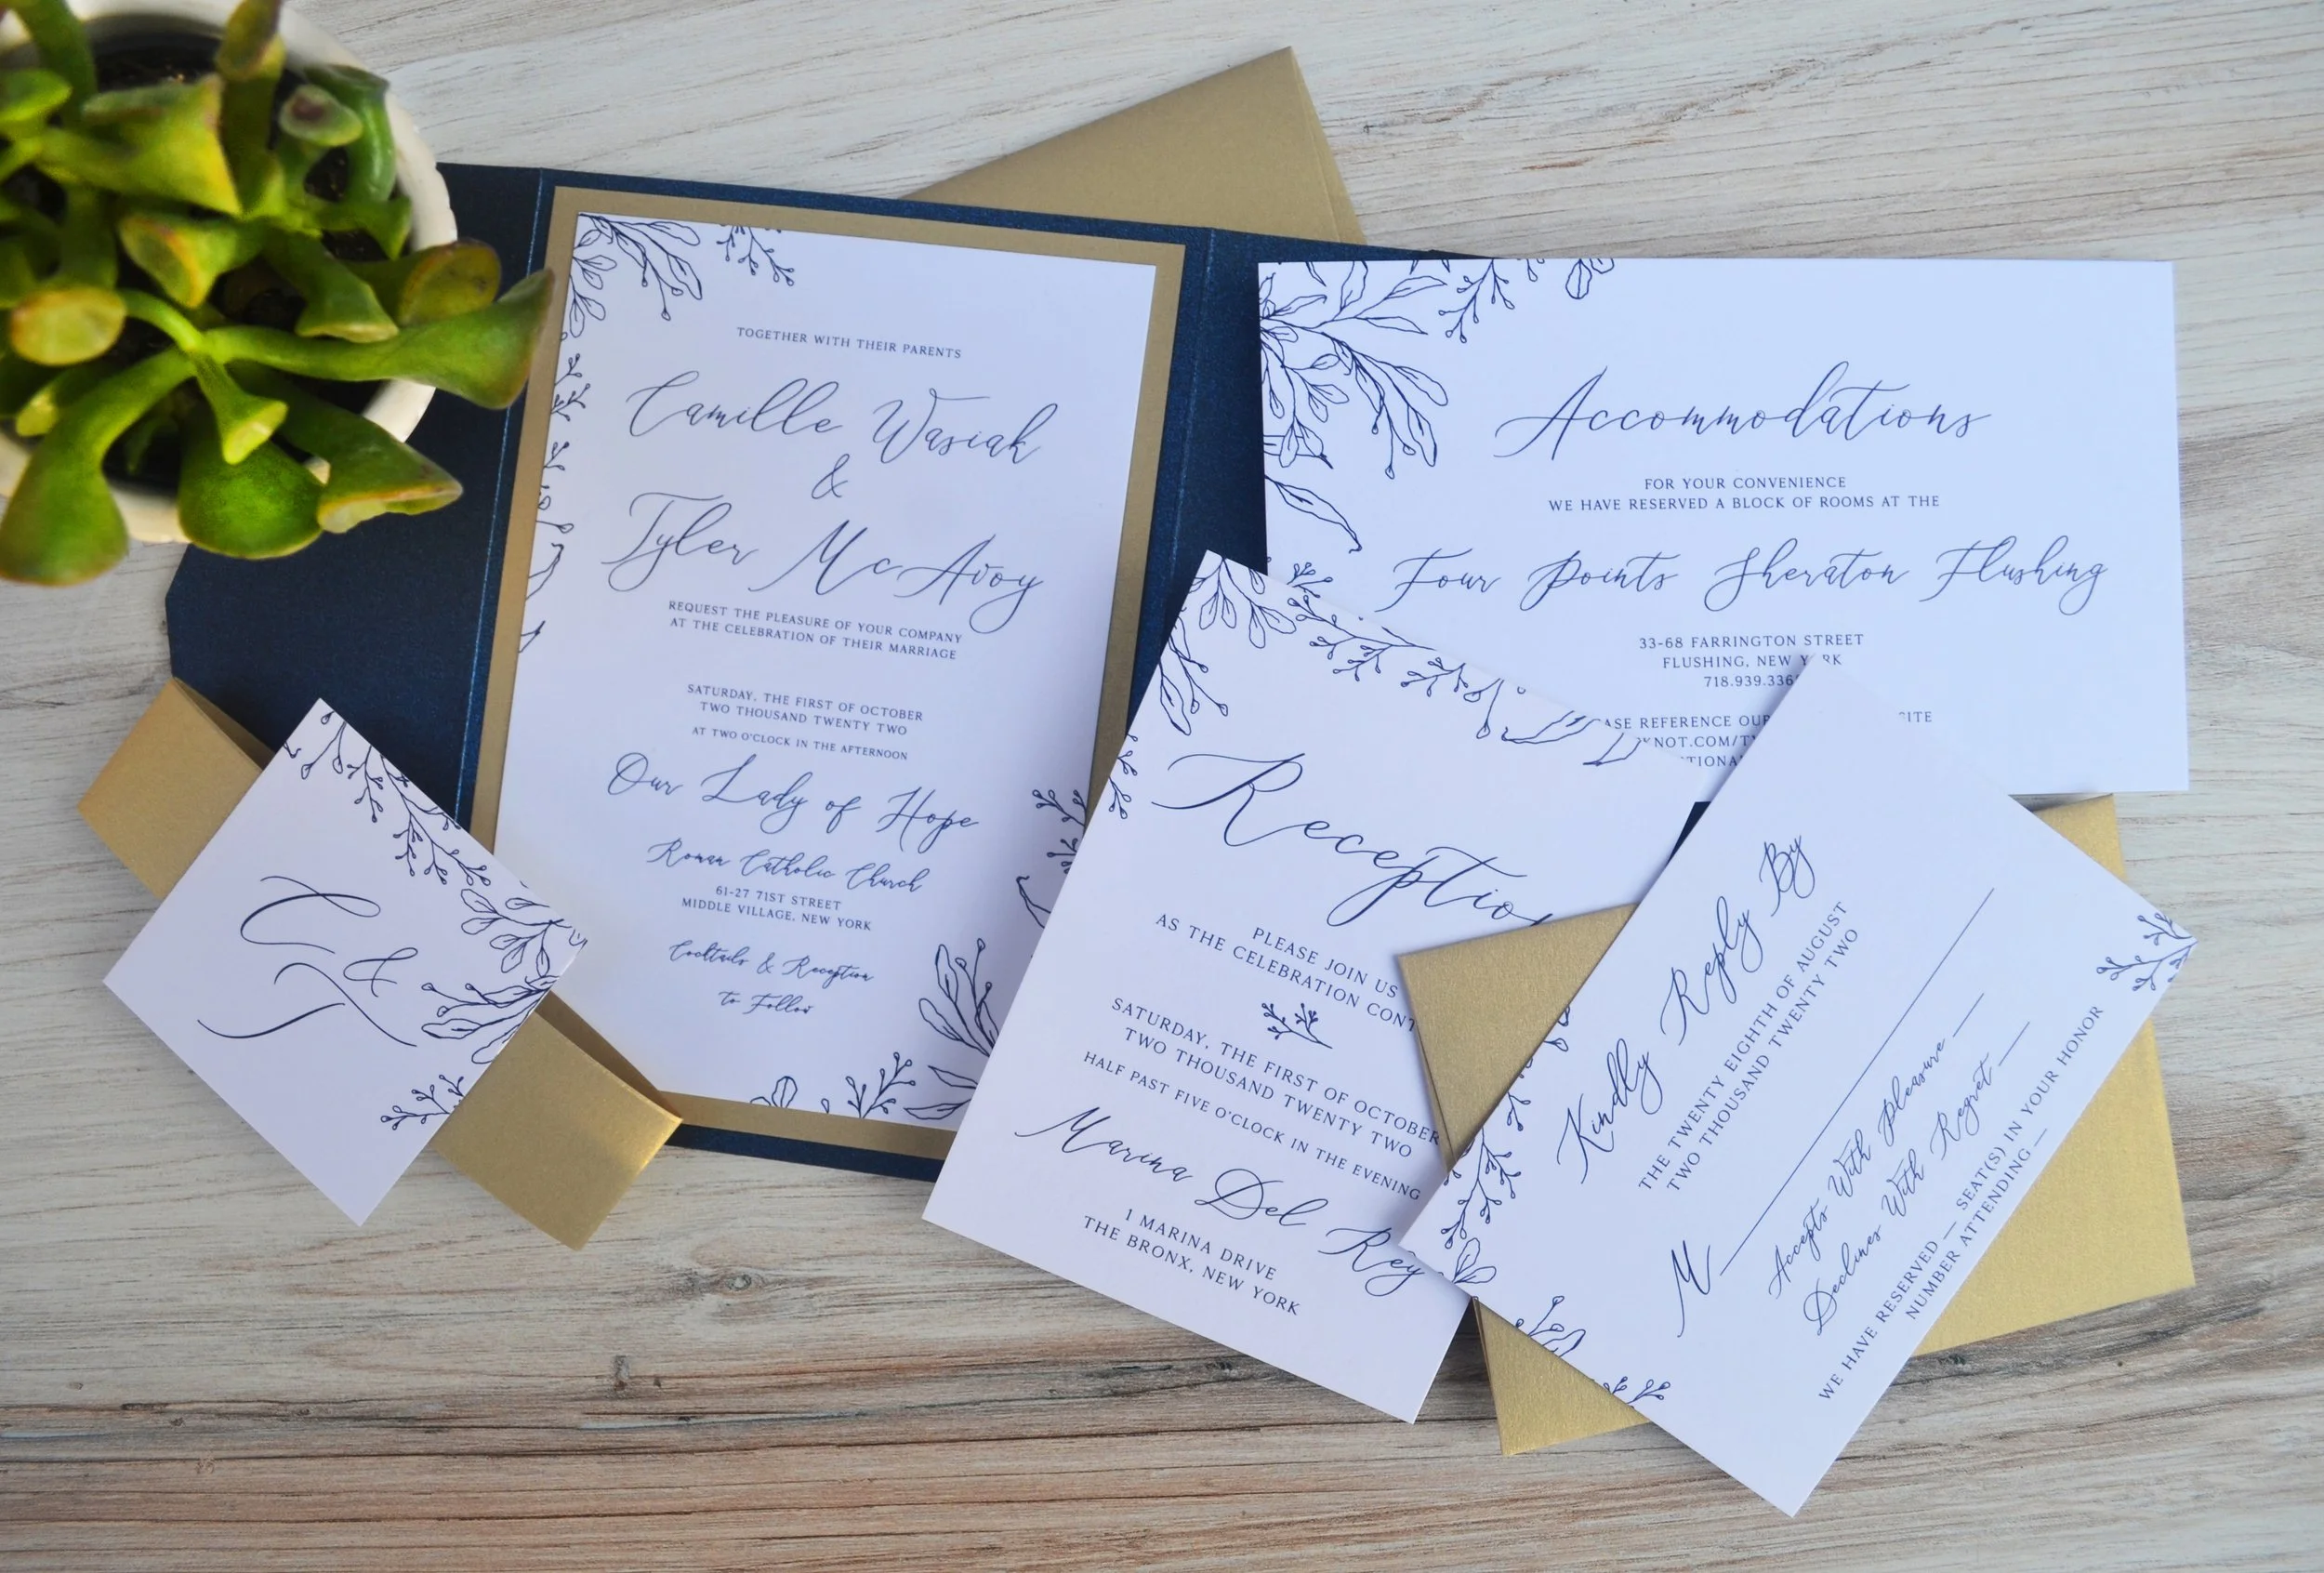 TOGETHER WITH THEIR PARENTS
Camille Wasiak
&
Tyler McAvoy
REQUEST THE PLEASURE OF YOUR COMPANY
AT THE CELEBRATION OF THEIR MARRIAGE
SATURDAY, THE FIRST OF OCTOBER
TWO THOUSAND TWENTY TWO
AT TWO O'CLOCK IN THE AFTERNOON
Our Lady of Hope
Roman Catholic Church
61-27 71ST STREET
MIDDLE VILLAGE, NEW YORK
Cocktails & Reception
to Follow
C &
T
Accommodations
FOR YOUR CONVENIENCE
WE HAVE RESERVED A BLOCK OF ROOMS AT THE
Four Points Sheraton Flushing
33-68 FARRINGTON STREET
FLUSHING, NEW
718.939.336
REFERENCE OUR
Reception
PLEASE JOIN US
AS THE CELEBRATION
SATURDAY, THE FIRST OF OCTOBER
TWO THOUSAND TWENTY TWO
HALF PAST FIVE O'CLOCK IN THE EVENING
Marina Del Rey
1 MARINA DRIVE
THE BRONX, NEW YORK
Kindly Reply By
THE TWENTY EIGHTH OF AUGUST
TWO THOUSAND TWENTY TWO
M
Accepts With Pleasure
Declines With Regret
WE HAVE RESERVED __ SEAT(S) IN YOUR HONOR
NUMBER ATTENDING __